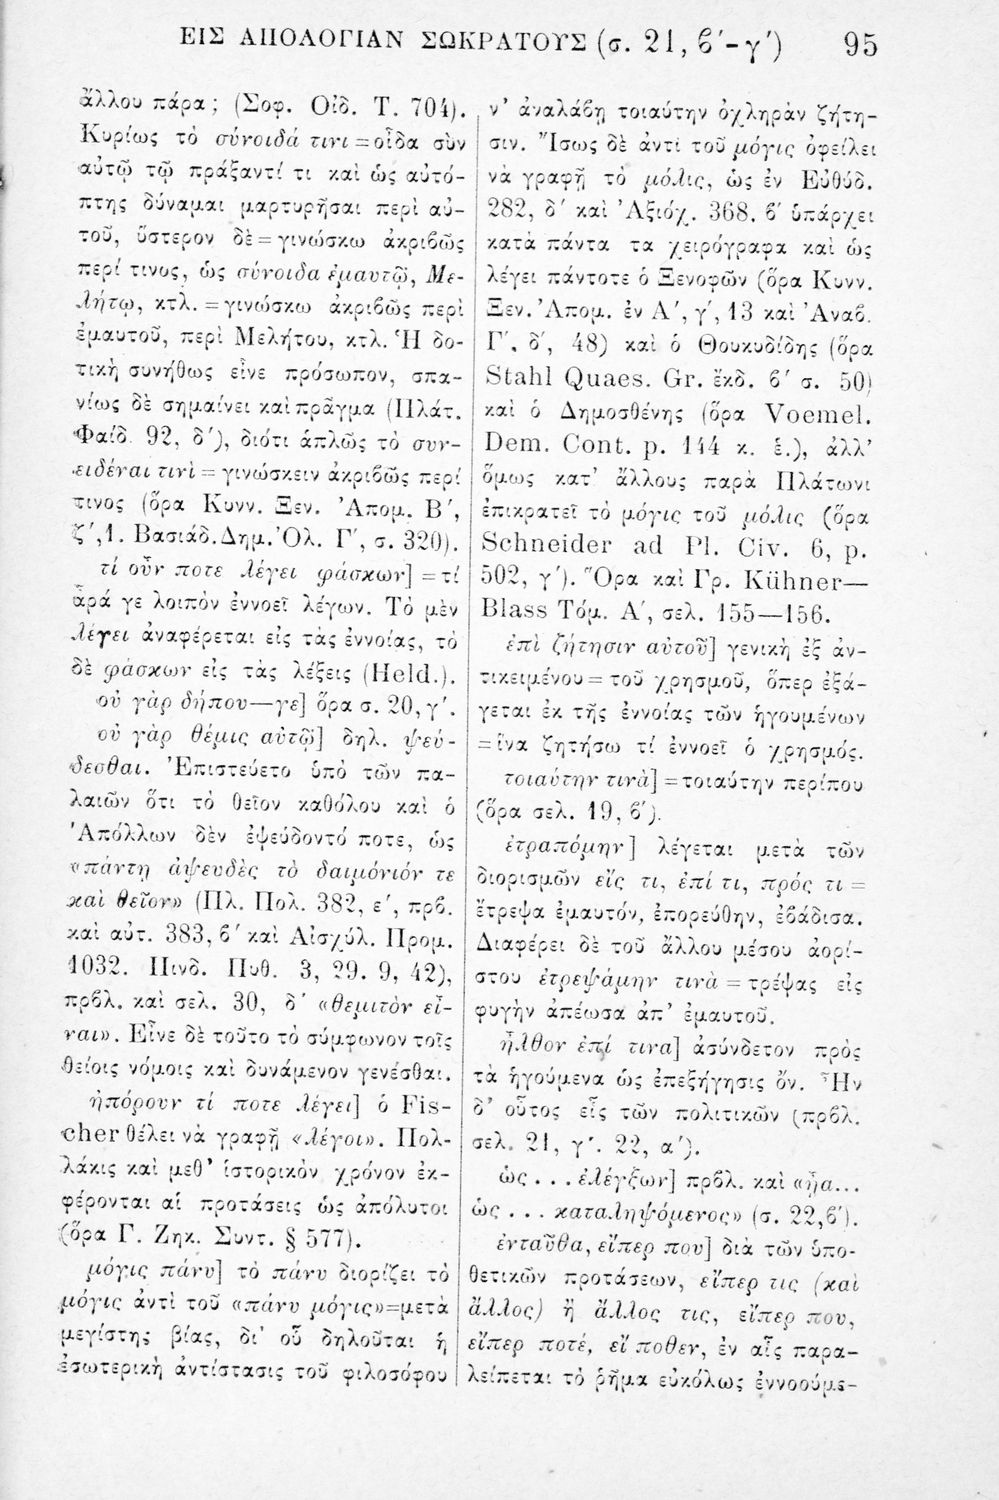 ΕΙΣ ΑΠΟΛΟΓΙΑΝ ΣΩΚΡΑΤΟΥΣ (σ. 21, β΄-γ΄) 95
ἄλλου πάρα; (Σοφ. Οἰδ. Τ. 704).
Κυρίως τὸ σύνοιδά τινι = οἶδα σὺν
αὐτῷ τῷ πράξαντί τι καὶ ὡς αὐτό-
πτης δύναμαι μαρτυρῆσαι περὶ αὐ-
τοῦ, ὕστερον δὲ = γινώσκω ἀκριβῶς
περί τινος, ὡς σύνοιδα ἐμαυτῷ, Με-
λήτῳ, κτλ. = γινώσκω ἀκριβῶς περὶ
ἐμαυτοῦ, περὶ Μελήτου, κτλ. Ἡ δο-
τικὴ συνήθως εἶνε πρόσωπον, σπα-
νίως δὲ σημαίνει καὶ πρᾶγμα (Πλάτ.
Φαίδ. 92, δ΄), διότι ἁπλῶς τὸ συν-
ειδέναι τινὶ = γινώσκειν ἀκριβῶς περί
τινος (ὅρα Κυνν. Ξεν. Ἀπομ. Β΄,
ζ΄,1. Βασιάδ. Δημ. Ὀλ. Γ΄, σ. 320).
τί οὖν ποτε λέγει φάσκων] = τί
ἆρά γε λοιπὸν ἐννοεῖ λέγων. Τὸ μὲν
λέγει ἀναφέρεται εἰς τὰς ἐννοίας, τὸ
δὲ φάσκων εἰς τὰς λέξεις (Held.).
οὐ γὰρ δήπου—γε] ὅρα σ. 20, γ΄.
οὐ γὰρ θέμις αὐτῷ] δηλ. ψεύ-
δεσθαι. Ἐπιστεύετο ὑπὸ τῶν πα-
λαιῶν ὅτι τὸ θεῖον καθόλου καὶ ὁ
Ἀπόλλων δὲν ἐψεύδοντό ποτε, ὡς
«πάντῃ ἀψευδὲς τὸ δαιμόνιόν τε
καὶ θεῖον» (Πλ. Πολ. 382, ε΄, πρβ.
καὶ αὐτ. 383, β΄ καὶ Αἰσχύλ. Προμ.
1032. Πινδ. Πυθ. 3, 29. 9, 42),
πρβλ. καὶ σελ. 30, δ΄ «θεμιτὸν εἶ-
ναι». Εἶνε δὲ τοῦτο τὸ σύμφωνον τοῖς
θείοις νόμοις καὶ δυνάμενον γενέσθαι.
ἠπόρουν τί ποτε λέγει] ὁ Fis-
cher θέλει νὰ γραφῇ «λέγοι». Πολ-
λάκις καὶ μεθ' ἱστορικὸν χρόνον ἐκ-
φέρονται αἱ προτάσεις ὡς ἀπόλυτοι
(ὅρα Γ. Ζηκ. Συντ. § 577).
μόγις πάνυ] τὸ πάνυ διορίζει τὸ
μόγις ἀντὶ τοῦ «πάνυ μόγις»=μετὰ
μεγίστης βίας, δι' οὗ δηλοῦται ἡ
ἐσωτερικὴ ἀντίστασις τοῦ φιλοσόφου
ν' ἀναλάβῃ τοιαύτην ὀχληρὰν ζήτη-
σιν. Ἴσως δὲ ἀντὶ τοῦ μόγις ὀφείλει
νὰ γραφῇ τὸ μόλις, ὡς ἐν Εὐθύδ.
282, δ΄ καὶ Ἀξιόχ. 368, β΄ ὑπάρχει
κατὰ πάντα τα χειρόγραφα καὶ ὡς
λέγει πάντοτε ὁ Ξενοφῶν (ὅρα Κυνν.
Ξεν. Ἀπομ. ἐν Α΄, γ΄, 13 καὶ Ἀναβ.
Γ΄, δ΄, 48) καὶ ὁ Θουκυδίδης (ὅρα
Stahl Quaes. Gr. ἔκδ. β΄ σ. 50)
καὶ ὁ Δημοσθένης (ὅρα Voemel.
Dem. Cont. p. 144 κ. ἑ.), ἀλλ'
ὅμως κατ' ἄλλους παρὰ Πλάτωνι
ἐπικρατεῖ τὸ μόγις τοῦ μόλις (ὅρα
Schneider ad Pl. Civ. 6, p.
502, γ΄). Ὅρα καὶ Γρ. Kühner—
Blass Τόμ. Α΄, σελ. 155—156.
ἐπὶ ζήτησιν αὐτοῦ] γενικὴ ἐξ ἀν-
τικειμένου = τοῦ χρησμοῦ, ὅπερ ἐξά-
γεται ἐκ τῆς ἐννοίας τῶν ἡγουμένων
= ἵνα ζητήσω τί ἐννοεῖ ὁ χρησμός.
τοιαύτην τινὰ] = τοιαύτην περίπου
(ὅρα σελ. 19, β΄).
ἐτραπόμην] λέγεται μετὰ τῶν
διορισμῶν εἴς τι, ἐπί τι, πρός τι =
ἔτρεψα ἐμαυτόν, ἐπορεύθην, ἐβάδισα.
Διαφέρει δὲ τοῦ ἄλλου μέσου ἀορί-
στου ἐτρεψάμην τινὰ = τρέψας εἰς
φυγὴν ἀπέωσα ἀπ' ἐμαυτοῦ.
ἦλθον ἐπί τινα] ἀσύνδετον πρὸς
τὰ ἡγούμενα ὡς ἐπεξήγησις ὄν. Ἦν
δ' οὗτος εἷς τῶν πολιτικῶν (πρβλ.
σελ. 21, γ΄. 22, α΄).
ὡς . . . ἐλέγξων] πρβλ. καὶ «ᾖα...
ὡς . . . καταληψόμενος» (σ. 22,β΄).
ἐνταῦθα, εἴπερ που] διὰ τῶν ὑπο-
θετικῶν προτάσεων, εἴπερ τις (καὶ
ἄλλος) ἢ ἄλλος τις, εἴπερ που,
εἴπερ ποτέ, εἴ ποθεν, ἐν αἷς παρα-
λείπεται τὸ ῥῆμα εὐκόλως ἐννοούμε-